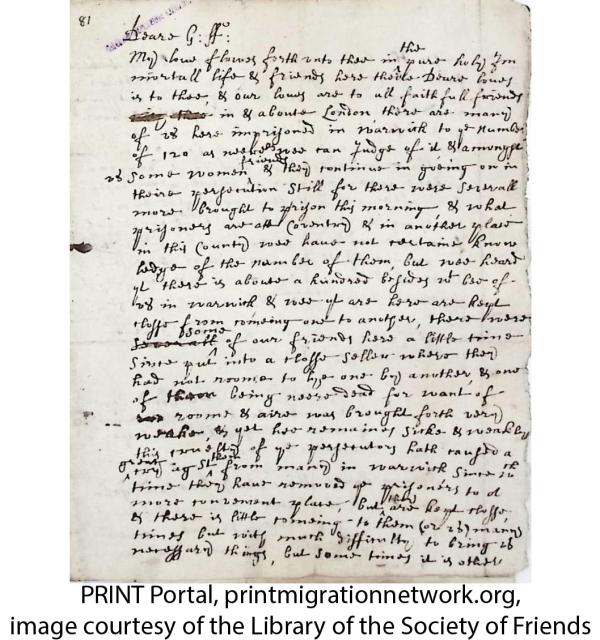 81
Deare G: ff:
My love flowes forth unto thee in the pure holy Im
mortall life & friends here theire Deare loves
is to thee, & our loves are to all faithfull friends
in & aboute London, there are many
of us here imprisoned in warwick to ye number
of 120 as neere as wee can Judge of it & amongst
us some women friends & they continue in goeing on in
theire persecution still for there were severall
more brought to prison this morning & what
prisoners are att Coventry & in another place
in this County wee have not certaine know
ledge of the number of them, but wee heard
yt there is aboute a hundred besides wt bee of
us in warwick & wee yt are here are kept
closse from comeing one to another, there were
some of our friends here a little time
since put into a closse Seller where they
had not roome to lye one by another, & one
of them being neere dead for want of
roome & aire was brought forth very
weake, & yet hee remaines sicke & weakly
this cruelty of ye persecutors hath caused a
great cry agst them from many in warwick since wch
time they have removed ye prisoners to a
more convenient place, but they are kept closse
& there is little comeing to them (or us) many
times but with much difficulty to bring us
necessary things, but some times it is other
PRINT Portal, printmigrationnetwork.org,
image courtesy of the Library of the Society of Friends